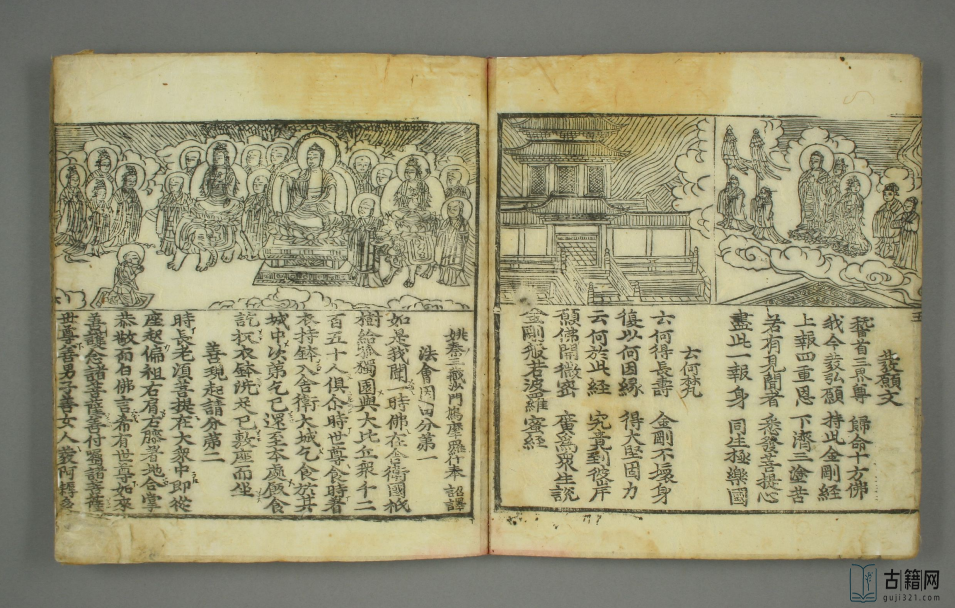 發願文
稽首三界尊 歸命十方佛
我今發弘願 持此金剛經
上報四重恩 下濟三塗苦
若有見聞者 悉發菩提心
盡此一報身 同生極樂國
云何梵
云何得長壽 金剛不壞身
復以何因緣 得大堅固力
云何於此經 究竟到彼岸
願佛開微密 廣爲眾生說
金剛般若波羅蜜經
姚秦三藏沙門鳩摩羅什奉 詔譯
法會因由分第一
如是我聞一時佛在舍衛國祇
樹給孤獨園與大比丘眾千二
百五十人俱尒時世尊食時着
衣持鉢入舍衛大城乞食於其
城中次第乞已還至本處飯食
訖收衣鉢洗足已敷座而坐
善現起請分第二
時長老須菩提在大眾中即從
座起偏袒右肩右膝着地合掌
恭敬而白佛言希有世尊如來
善護念諸菩薩善付囑諸菩薩
世尊善男子善女人發阿耨多
古籍网
guji321.com